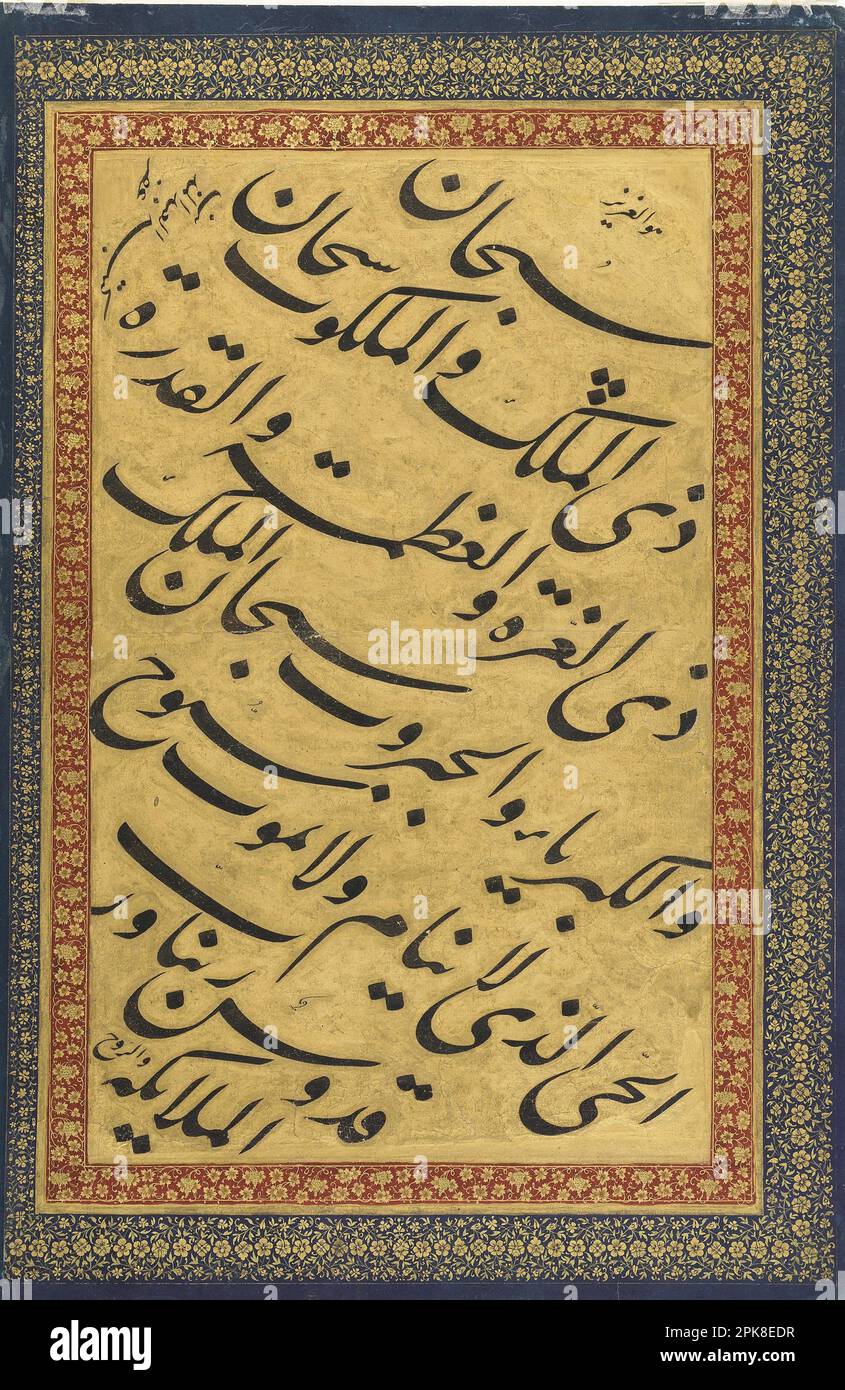 هو العزیز
سبحان
ذی الملک والملکوت سبحان
ذی العزة والعظمة والقدرة
والکبریاء والجبروت سبحان الملک
الحی الذی لا ینام ولا یموت سبوح
قدوس ربنا ورب
الملائکه والروح
alamy
Image ID: 2PK8EDR
www.alamy.com